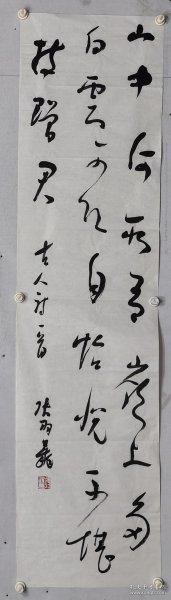 山中何所有岭上多
白云只可自怡悦不堪
持赠君 古人诗一首